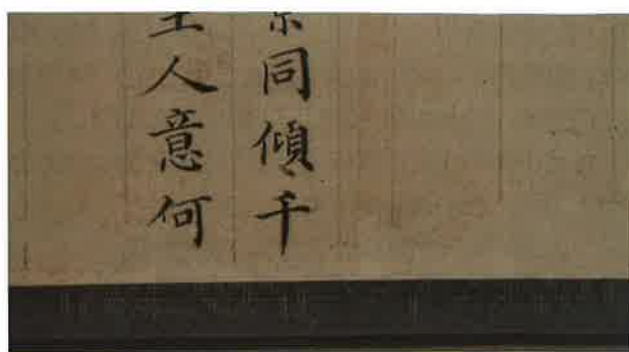 同傾千
主人意何